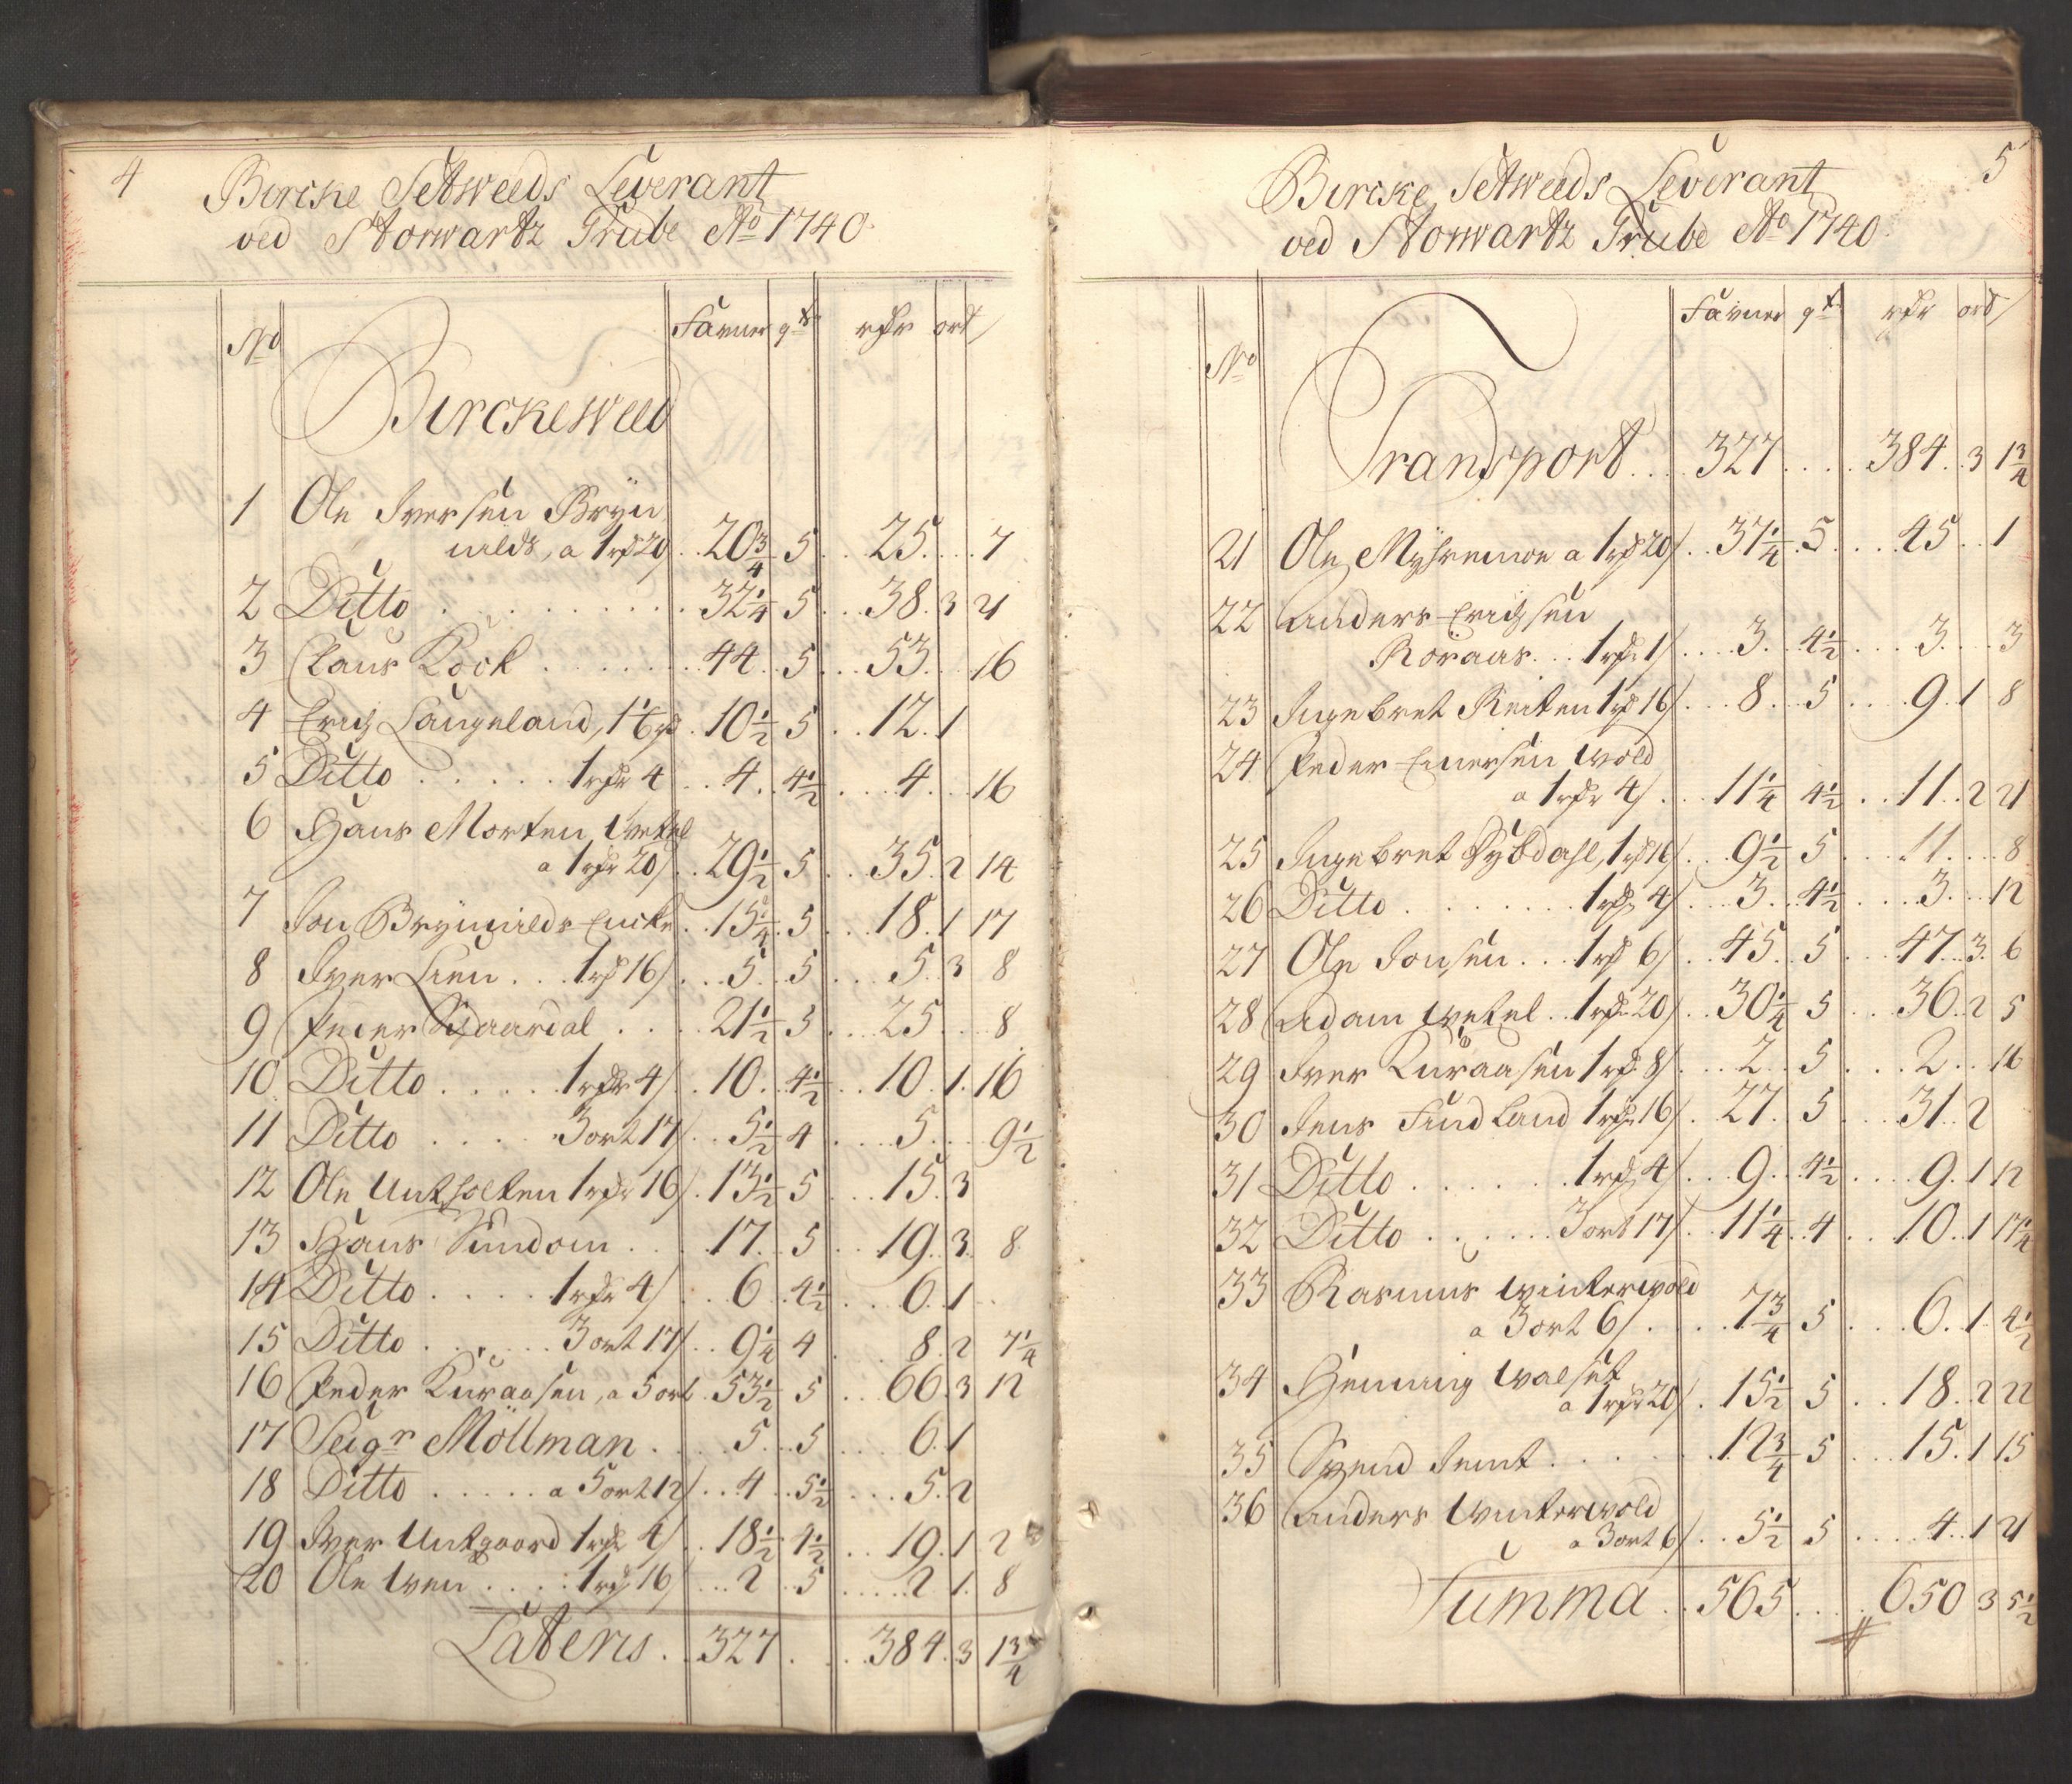 4
Bircke Setweeds Leverant
ved Storwartz Grube Ao 1740
No Favner qt rdr ort /
Birckeweed
1 Ole Iversen Bryn
nilds, a 1 rd 20/ .. 20 3/4 5 .. 25 .... 7
2 Ditto ......... 32 1/4 5 ... 38. 3 21
3 Claus Kock ....... 44 .. 5 ... 53 ... 16
4 Erich Langeland, 1 1/6 rd . 10 1/2 5 .. 12. 1
5 Ditto ..... 1 rdr 4 .. 4 .. 4 1/2 ... 4 ... 16
6 Hans Morten Wetel
a 1 rdr 20/ .. 29 1/2 5 .. 35. 2 14
7 Jon Brynnilds Encke .. 15 1/4 . 5 ... 18. 1 17
8 Iver Lien ... 1 rd 16/ ... 5 .. 5 ... 5. 3 8
9 Peder Skaardal .... 21 1/2 5 ... 25 ... 8
10 Ditto ..... 1 rdr 4/ .. 10 .. 4 1/2 .. 10. 1. 16
11 Ditto ..... 3 ort 17/ .. 5 1/2 4 .... 5 .... 9 1/2
12 Ole Untholten 1 rdr 16/ . 13 1/2 5 ... 15. 3
13 Hans Sundom .... 17 .. 5 .. 19. 3. 8
14 Ditto ..... 1 rdr 4/ .. 6 .. 4 1/2 ... 6. 1
15 Ditto ...... 3 ort 17/ .. 9 1/4 4 ... 8. 2 7 1/4
16 Peder Kuraasen, a 5 ort . 53 1/2 5 .. 66. 3 12
17 Seigr Möllman ..... 5 ... 5 .... 6. 1
18 Ditto ..... a 5 ort 12/ ... 4 .. 5 1/2 ... 5. 2
19 Iver Untgaard 1 rdr 4/ .. 18 1/2 4 1/2 .. 19. 1 2
20 Ole Wen ..... 1 rd 16/ ... 2 .. 5 ..... 2 1. 8
Lateris .. 327 .... 384. 3 1 3/4
5
Bircke Setweeds Leverant
ved Storwartz Grube Ao 1740
No Favner qt rdr ort /
Transport ... 327 .... 384 .. 3 1 3/4
21 Ole Myhremoe a 1 rd 20/ .. 37 1/4 . 5 .... 45 .. 1
22 Anders Erichsen
Röraas ... 1 rdr 1/ .... 3 .. 4 1/2 ... 3 .... 3
23 Ingebret Reiten 1 rd 16/ ... 8 .. 5 .... 9. 1 8
24 Peder Einersen Wold
a 1 rdr 4/ ... 11 1/4 4 1/2 .. 11. 2 21
25 Ingebret Rybdahl, 1 rd 16/ .. 9 1/2 5 ... 11 .... 8
26 Ditto ....... 1 rdr 4/ ... 3 .. 4 1/2 .... 3 ... 12
27 Ole Jonsen ... 1 rd 6/ .. 45 .. 5 ... 47 .. 3. 6
28 Adam Wetel .. 1 rdr 20/ .. 30 1/4 5 ... 36. 2 5
29 Iver Kuraasen 1 rd 8/ ... 2 .. 5 ... 2 ... 16
30 Jens Findland 1 rdr 16/ . 27. 5 ... 31. 2
31 Ditto ...... 1 rd 4/ ... 9 .. 4 1/2 .... 9. 1 12
32 Ditto ...... 3 ort 17/ .. 11 1/4 . 4 .. 10. 1 17 1/4
33 Rasmus Winterwold
a 3 ort 6/ .... 7 3/4 5 ... 6. 1 4 1/2
34 Henning Walset
a 1 rdr 20/ . 15 1/2 5 .. 18. 2 22
35 Svend Jemt ...... 12 3/4 5 ... 15. 1 15
36 Anders Winterwold
a 3 ort 6/ .. 5 1/2 5 .... 4. 1 21
Summa .. 565 .... 650 3 5 1/2